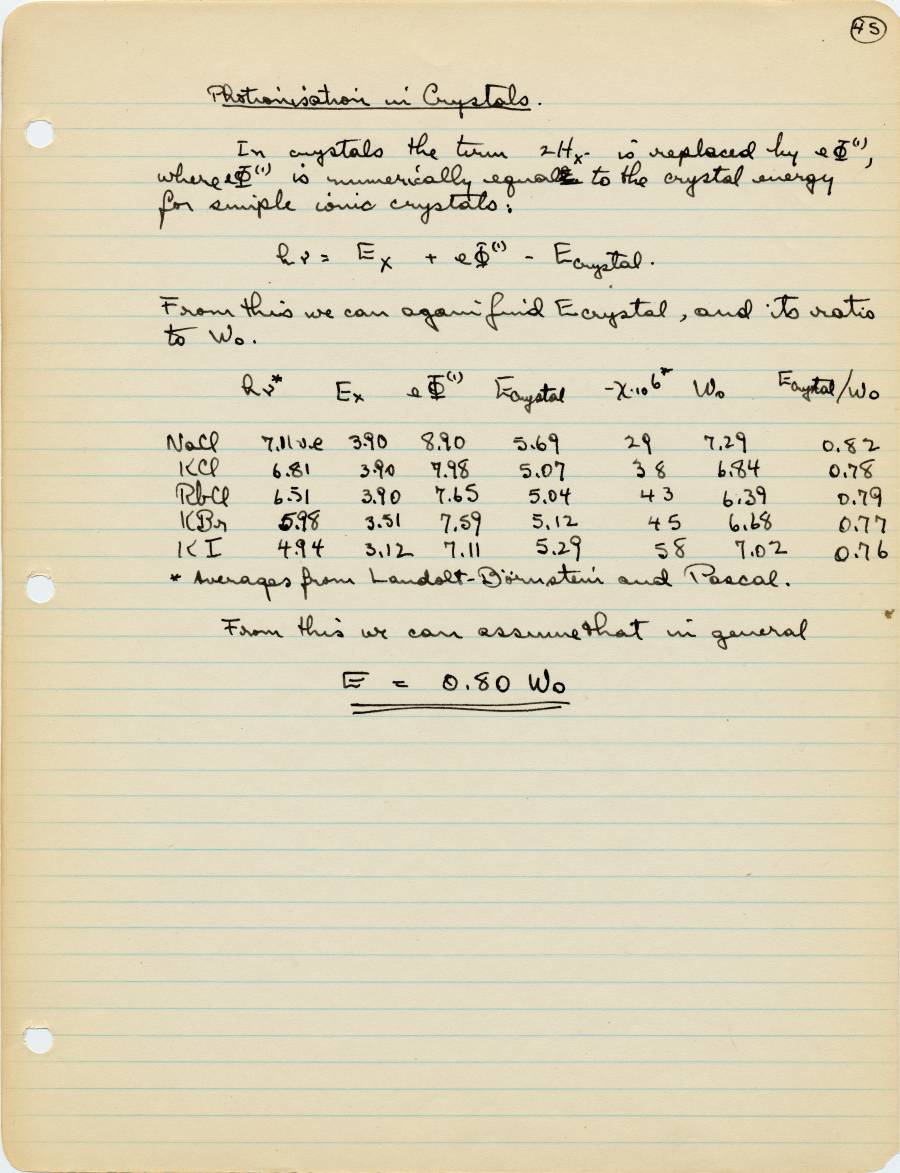 45
Photoionisation in Crystals.
In crystals the term 2Hx- is replaced by eΦ⁽¹⁾,
where eΦ⁽¹⁾ is numerically equal to the crystal energy
for simple ionic crystals:
hν = Ex + eΦ⁽¹⁾ - Ecrystal.
From this we can again find Ecrystal, and its ratio
to W₀.
hν* Ex eΦ⁽¹⁾ Ecrystal -χ·10⁶* W₀ Ecrystal/W₀
NaCl 7.11 v.e 3.90 8.90 5.69 29 7.29 0.82
KCl 6.81 3.90 7.98 5.07 38 6.84 0.78
RbCl 6.51 3.90 7.65 5.04 43 6.39 0.79
KBr 5.98 3.51 7.59 5.12 45 6.68 0.77
KI 4.94 3.12 7.11 5.29 58 7.02 0.76
* Averages from Landolt-Börnstein and Pascal.
From this we can assume that in general
E = 0.80 W₀